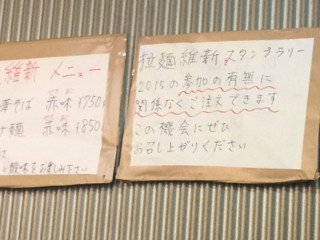 維新 メニュー
そば 赤味 ¥750
麺 赤味 ¥850
酸味をお楽しみ下さい
拉麺維新 スタンプラリー
2015の参加の有無に
関係なくご注文できます
この機会にぜひ
お召し上がりください